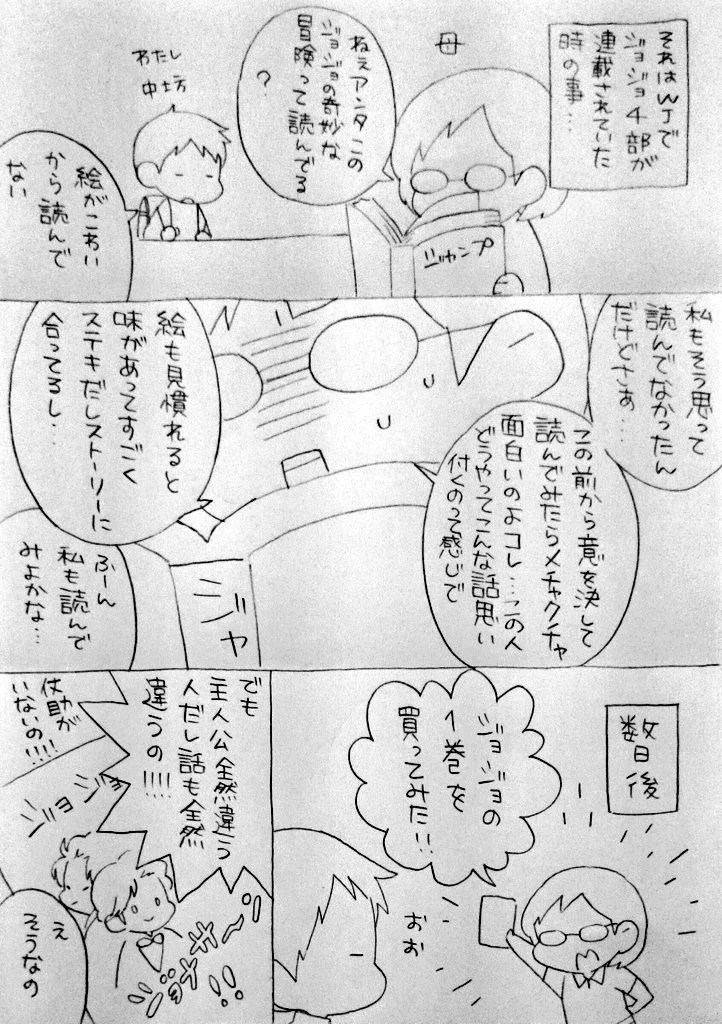 それはWJで
ジョジョ4部が
連載されていた
時の事…
母
ねぇアンタこの
ジョジョの奇妙な
冒険って読んでる
?
わたし
中坊
絵がこわい
から読んで
ない
ジャンプ
私もそう思って
読んでなかったん
だけどさぁ…
この前から意を決して
読んでみたらメチャクチャ
面白いのよコレ…この人
どうやってこんな話思い
付くのって感じで
絵も見慣れると
味があってすごく
ステキだしストーリーに
合ってるし…
ふーん
私も読んで
みよかな…
ジャ
数日後
ジョジョの
1巻を
買ってみた!!
おお
でも
主人公全然違う
人だし話も全然
違うの!!!!
仗助が
いないの!!!!
ジョジョ
え
そうなの